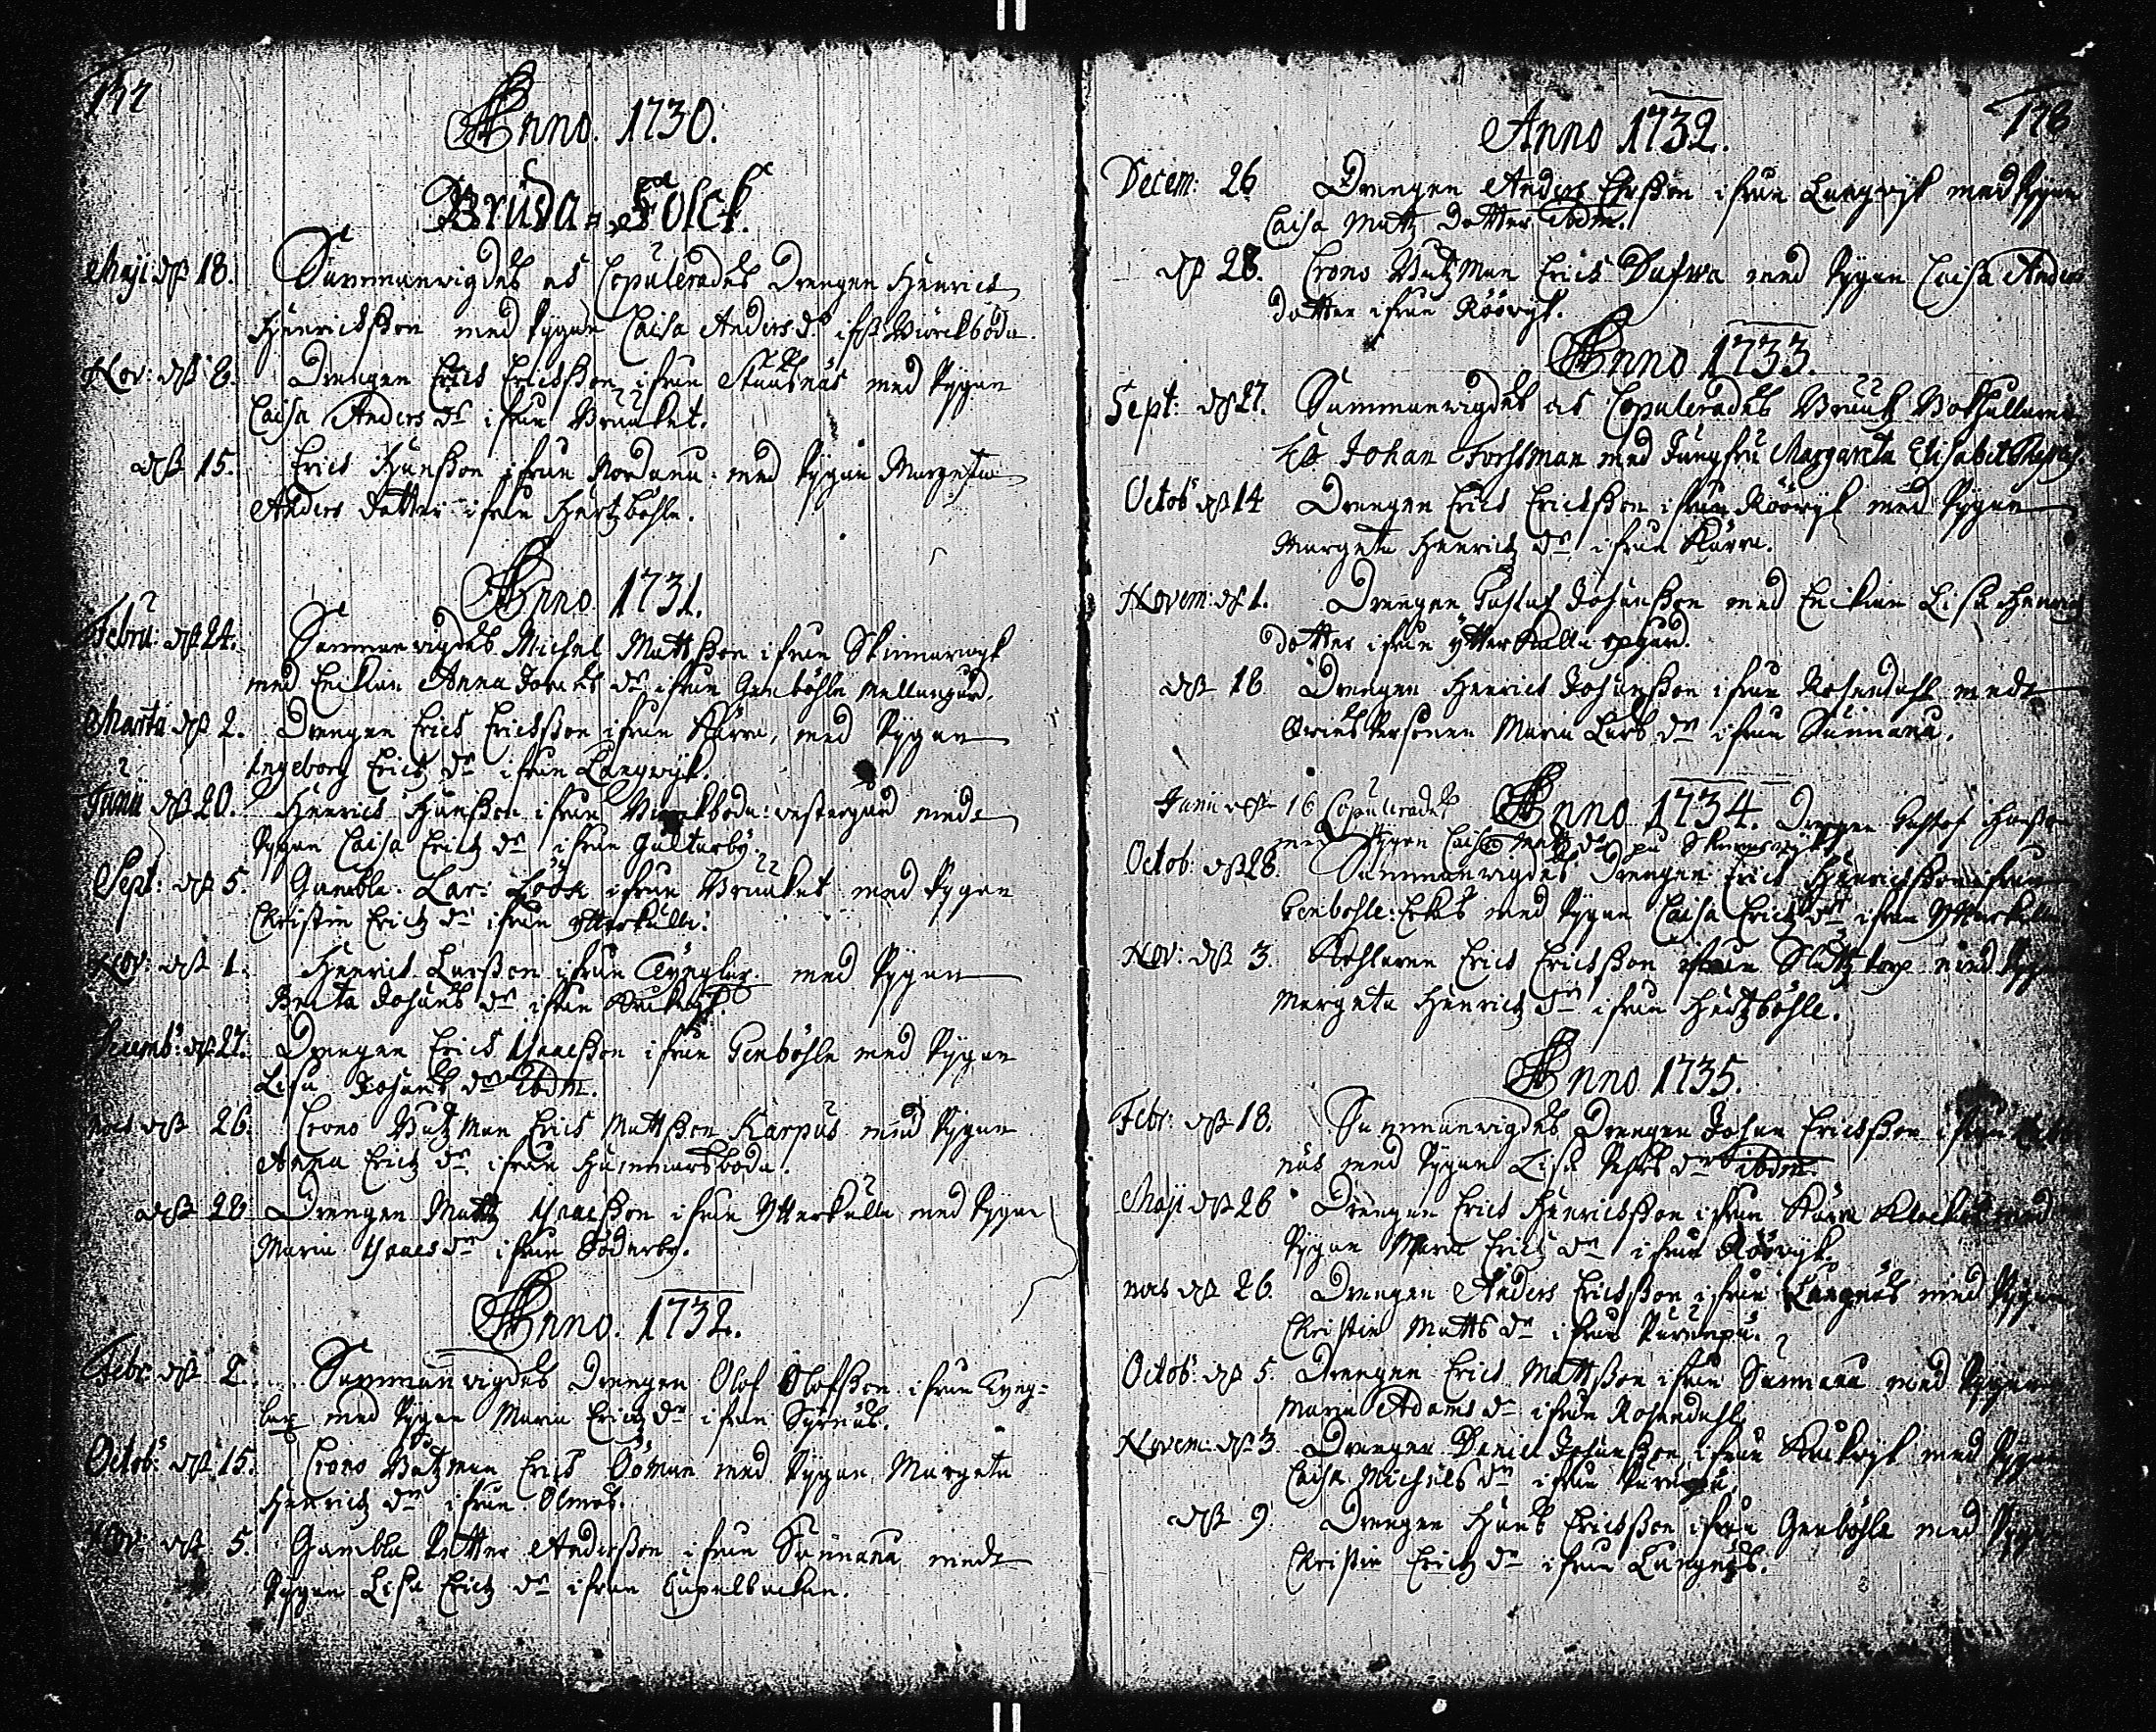 177
Anno. 1730.
Bruda-Folck.
Maji dß 18. Sammanvigdes och Copulerades Drengen Henrich
Henrichsson med Pygan Caisa Anders dr ifr. Björckboda.
Nov: dß 8. Drengen Erich Erichsson ifrån Staasnäs med Pygan
Caisa Anders dr ifrån Bruuket.
dß 15. Erich Hansson ifrån Nordanå med Pygan Margeta
Anders dotter ifrån Hertzböhle.
Anno. 1731.
Febru: dß 24. Sammanvigdes Michel Mattsson ifrån Skinnarvyk
med Enckan Anna Johans dr ifrån Genböhle Mellangård.
Martii dß 2. Drengen Erich Erichsson ifrån Kärra, med Pygan
Ingeborg Erichz dr ifrån Langwyk.
Junii dß 20. Henrich Hansson ifrån Björckboda: västergård med
Pygan Caisa Erichz dr ifrån Gultarby.
Sept: dß 5. Gamble Lars Löök ifrån Bruuket med Pygan
Christin Erichz dr ifrån Ytterkulla.
Nov: dß 1. Henrich Larsson ifrån med Pygan
Brita Johans dr ifrån
Decemb: dß 27. Drengen Erich Isacsson ifrån Genböhle med Pygan
Lisa Johans dr Ibdm.
dß 26. Crono Båtzman Erich Mattsson Karpus med Pygan
Anna Erichz dr ifrån Hammarsboda.
dß 28 Drengen Mattz Isacsson ifrån Ytterkulla med Pygan
Maria Isacs dr ifrån Söderby.
Anno. 1732.
Febr: dß 2. Sammanvigdes Drengen Olof Olofsson ifrån
med Pygan Maria Erichz dr ifrån
Octob: dß 15. Crono Båtzman Erich Ööman med Pygan Margeta
Henrichz dr ifrån Olmos.
Nov: dß 5. Gambla Petter Andersson ifrån Sunnanå med
Pygan Lisa Erichz dr ifrån Capelbacken.
178
Anno 1732.
Decem: 26 Drengen Anders ifrån Langwyk med Pygan
Caisa Mattz Dotter Ibdm.
dß 28. Crono Båtzman Erich Dufwa med Pygan Caisa Anders
dotter ifrån Röövyk.
Anno 1733.
Sept: dß 27. Sammanvigdes och Copulerades Bruuks Bokhållaren
Johan Forssman med Jungfru Margareta Elisabet
Octob dß 14 Drengen Erich Erichsson ifrån Röövyk med Pygan
Margeta Henrichz dr ifrån Kärra.
Novem: dß 1. Drengen Gustaf Johansson med Enckan Lisa Henrichz
dotter ifrån ytterkulla opgård.
dß 18 Drengen Henrich Johansson ifrån Rosendahl med
Personen Maria Lars dr ifrån Sunnanå.
Anno 1734.
Junii dß 16 Copulerades Drengen Gustaf Hansson
med Pygan Caisa Mattz dr på
Octob: dß 28. Sammanvigdes Drengen Erich Henrichsson ifrån
Genböhle: med Pygan Caisa Erichz dr ifrån Ytterkulla
Nov: dß 3. Erich Erichsson ifrån med Pygan
Margeta Henrichz dr ifrån Hertzböhle.
Anno 1735.
Febr: dß 18. Sammanvigdes Drengen Johan Erichsson ifrån
näs med Pygan Lisa dr ibdm.
Maji dß 26 Drengen Erich Henrichsson ifrån Kärra med
Pygan Maria Erichz dr ifrån Röövyk.
dß 26. Drengen Anders Erichsson ifrån Langnäs med Pygan
Christin Matts dr ifrån Purunpä.
Octob: dß 5. Drengen Erich Mattsson ifrån Sunnanå med Pygan
Maria Adams dr ifrån Rosendahl.
Novem: dß 3. Drengen Daniel Johansson ifrån med Pygan
Caisa Michels dr ifrån Purunpä.
dß 9. Drengen Hans Erichsson ifrån Genböhle med Pygan
Christin Erichz dr ifrån Langnäs.